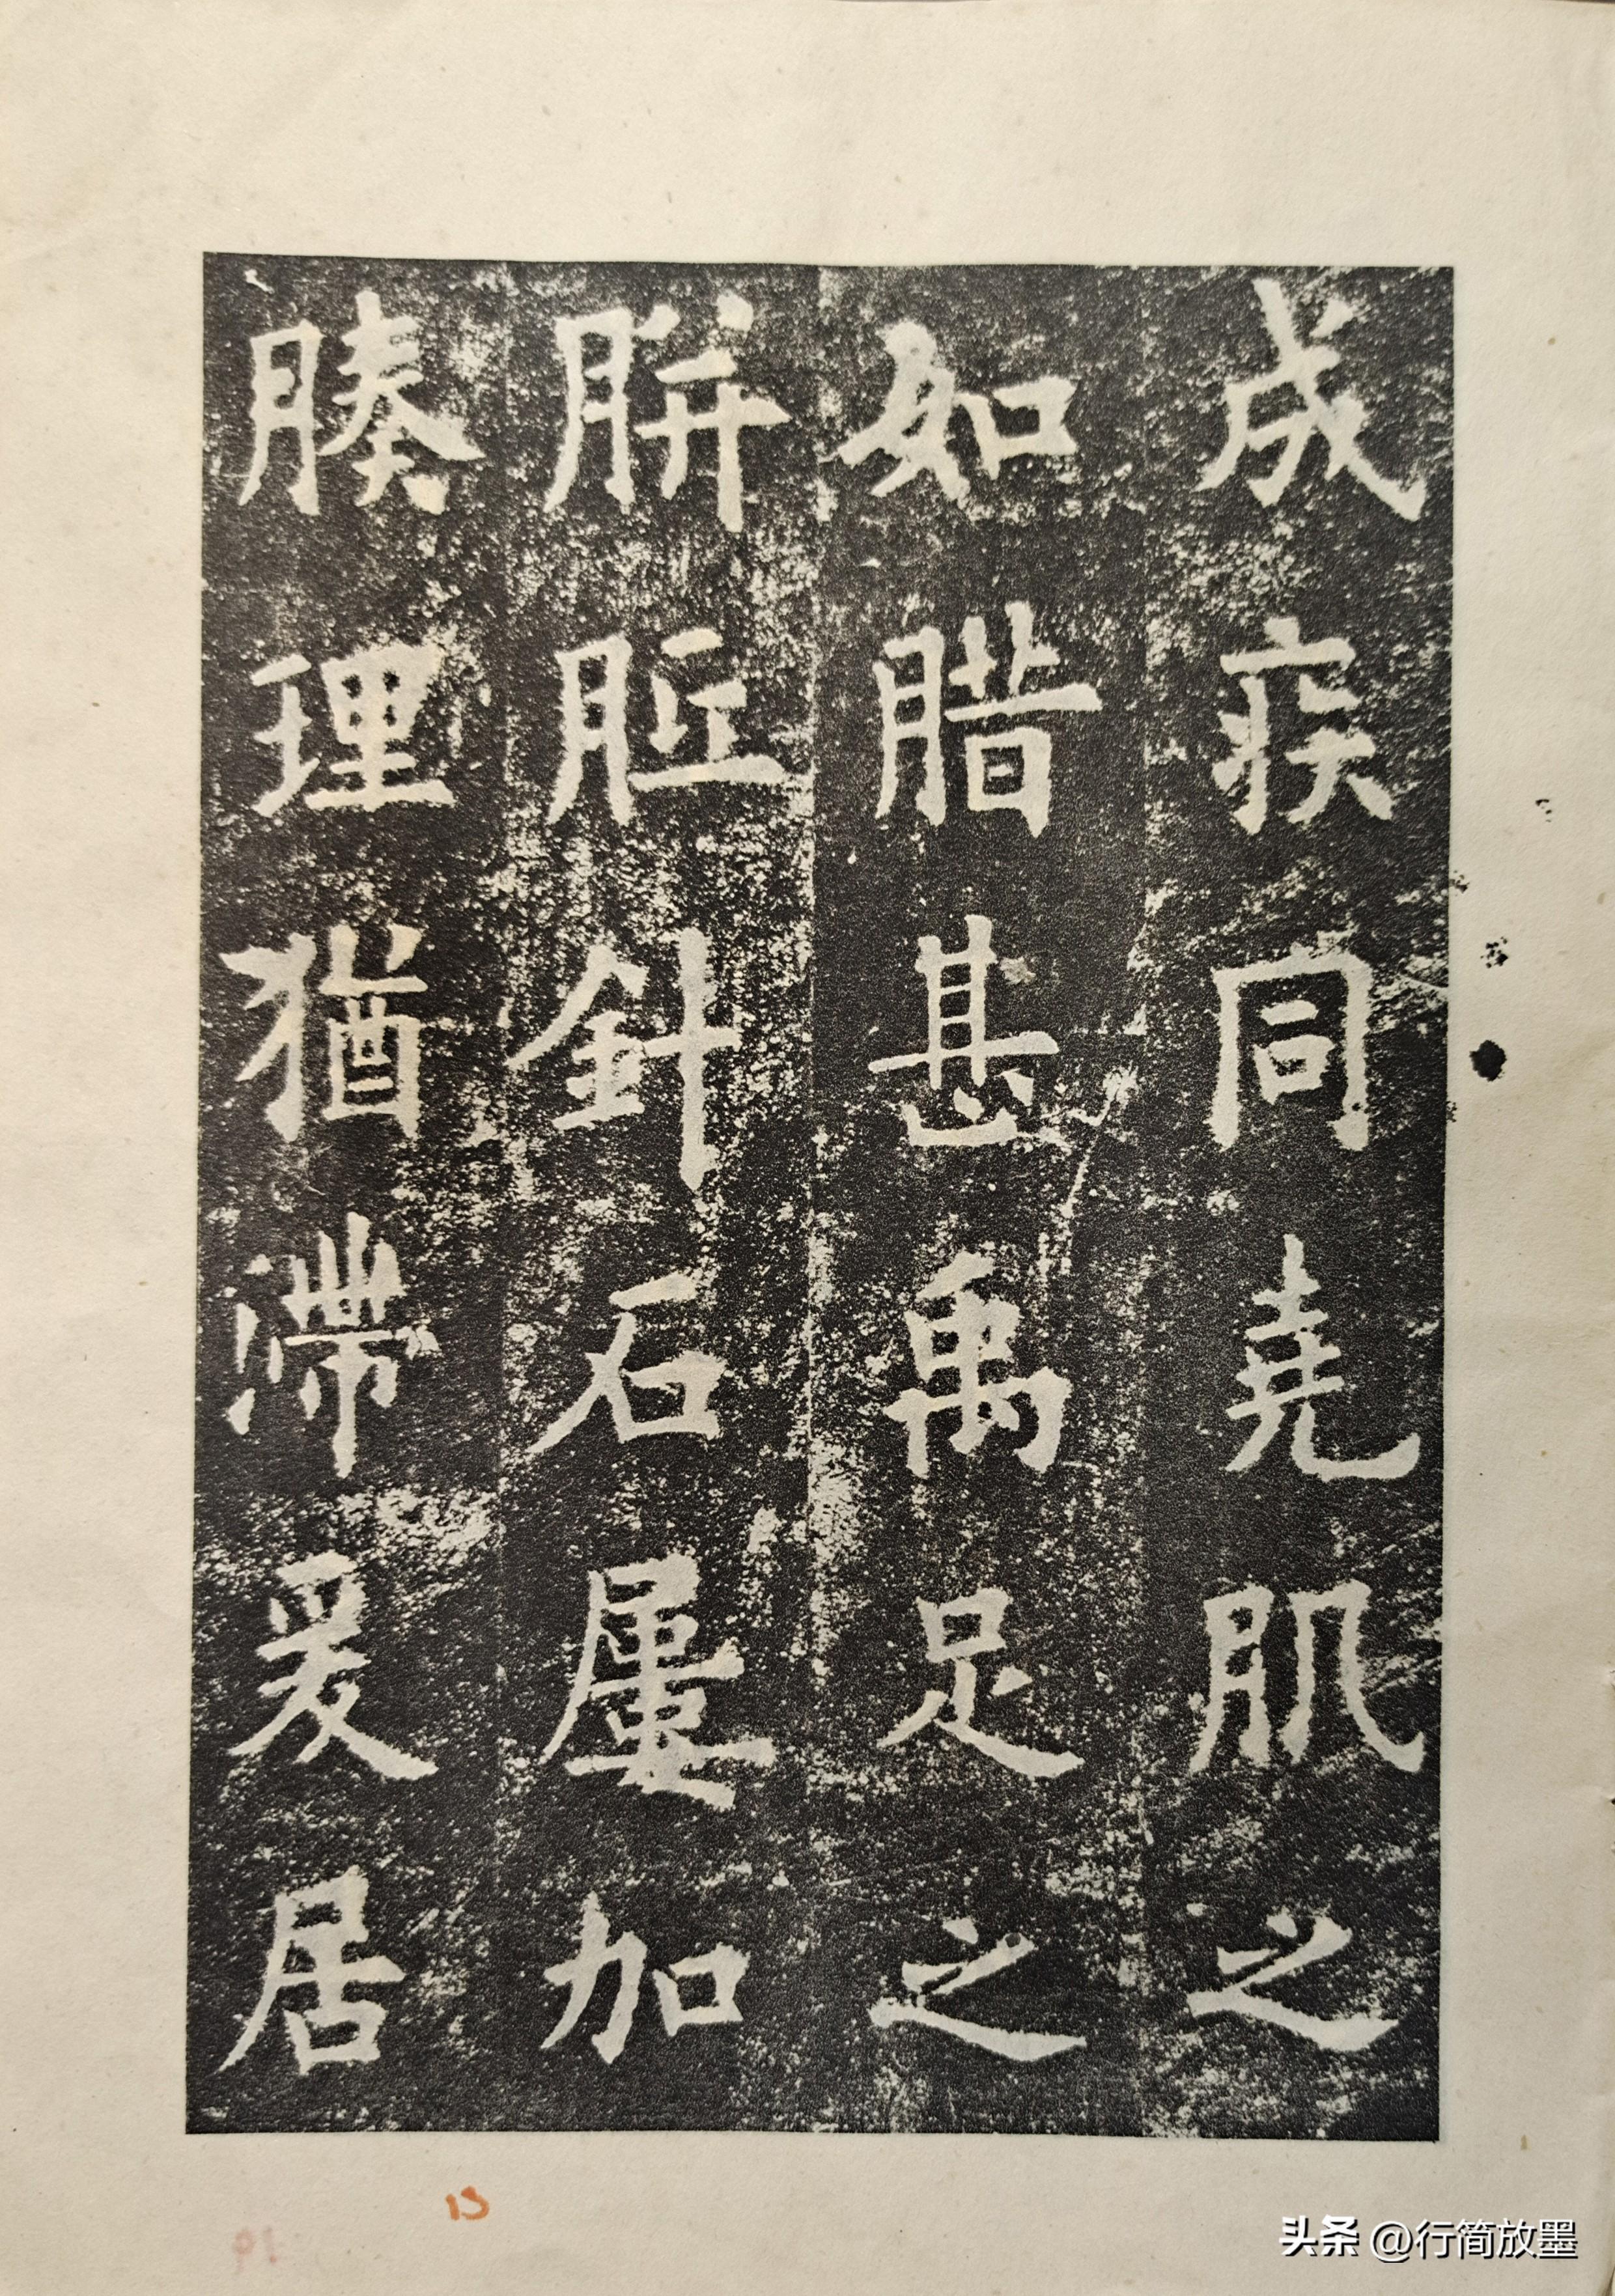 成疾同堯肌之
如腊甚禹足之
胼胝針石屢加
腠理猶滯爰居
13
头条 @行简放墨